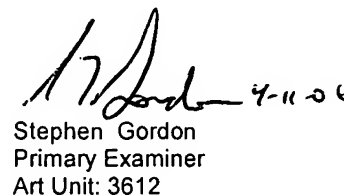 4-11-06
Stephen Gordon
Primary Examiner
Art Unit: 3612